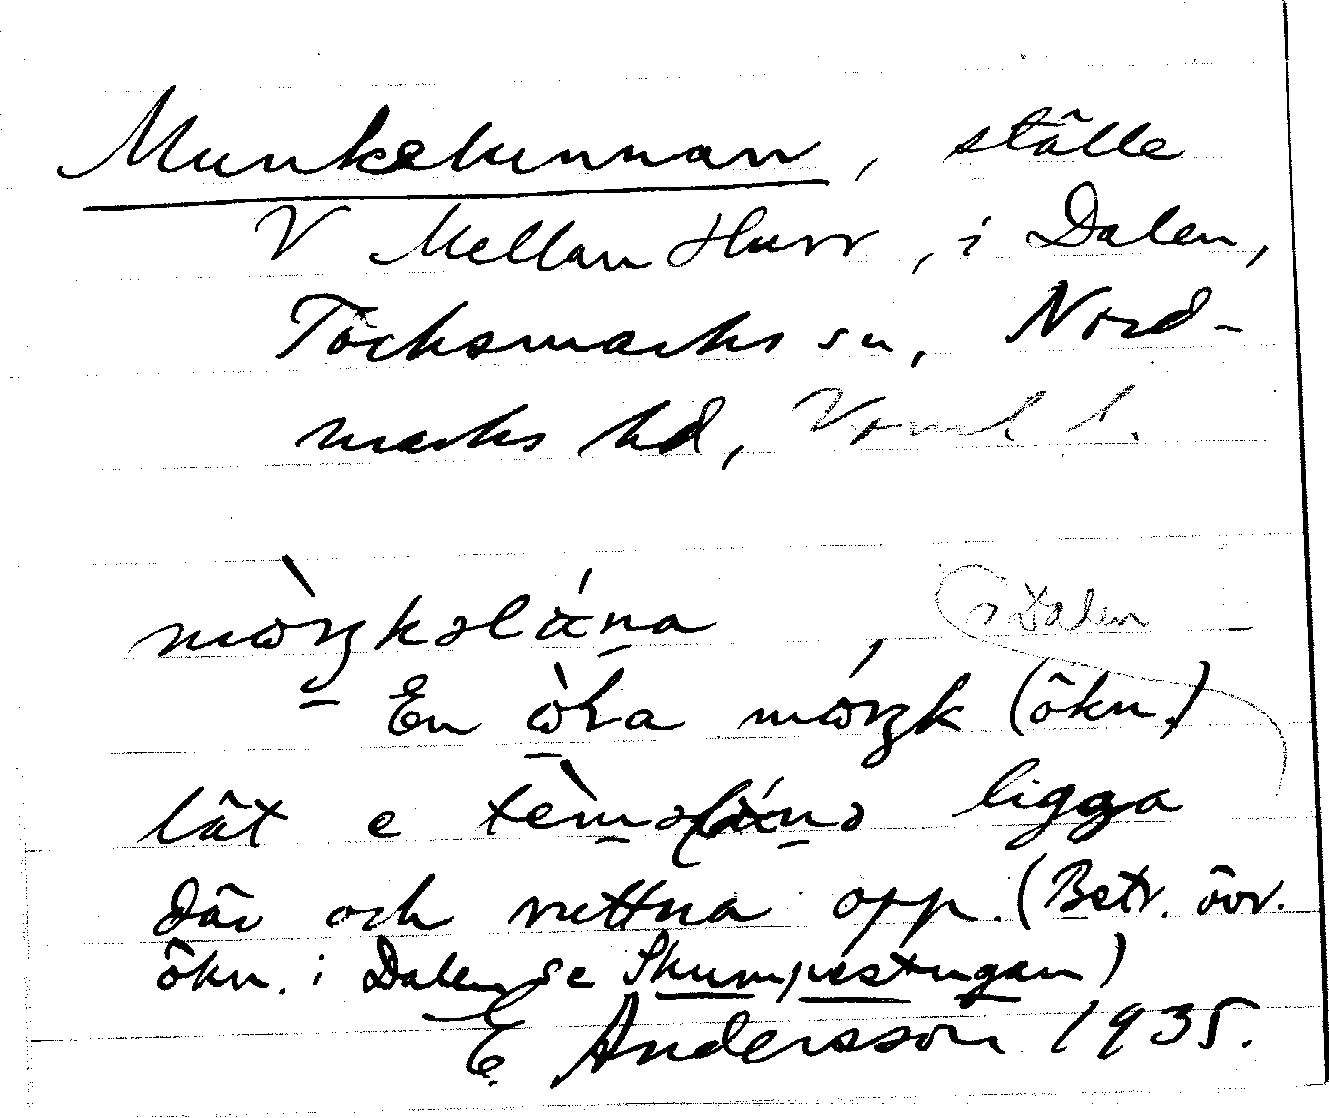 Munkelunnan, ställe
V Mellan Hurr, i Dalen,
Töcksmarks sn, Nord-
marks hd, Värml. l.
i Dalen
En (ökn.)
lät e ligga
där och ruttna opp. (Betr. övr.
ökn. i Dalen se Skumpestugan)
E. Andersson 1935.